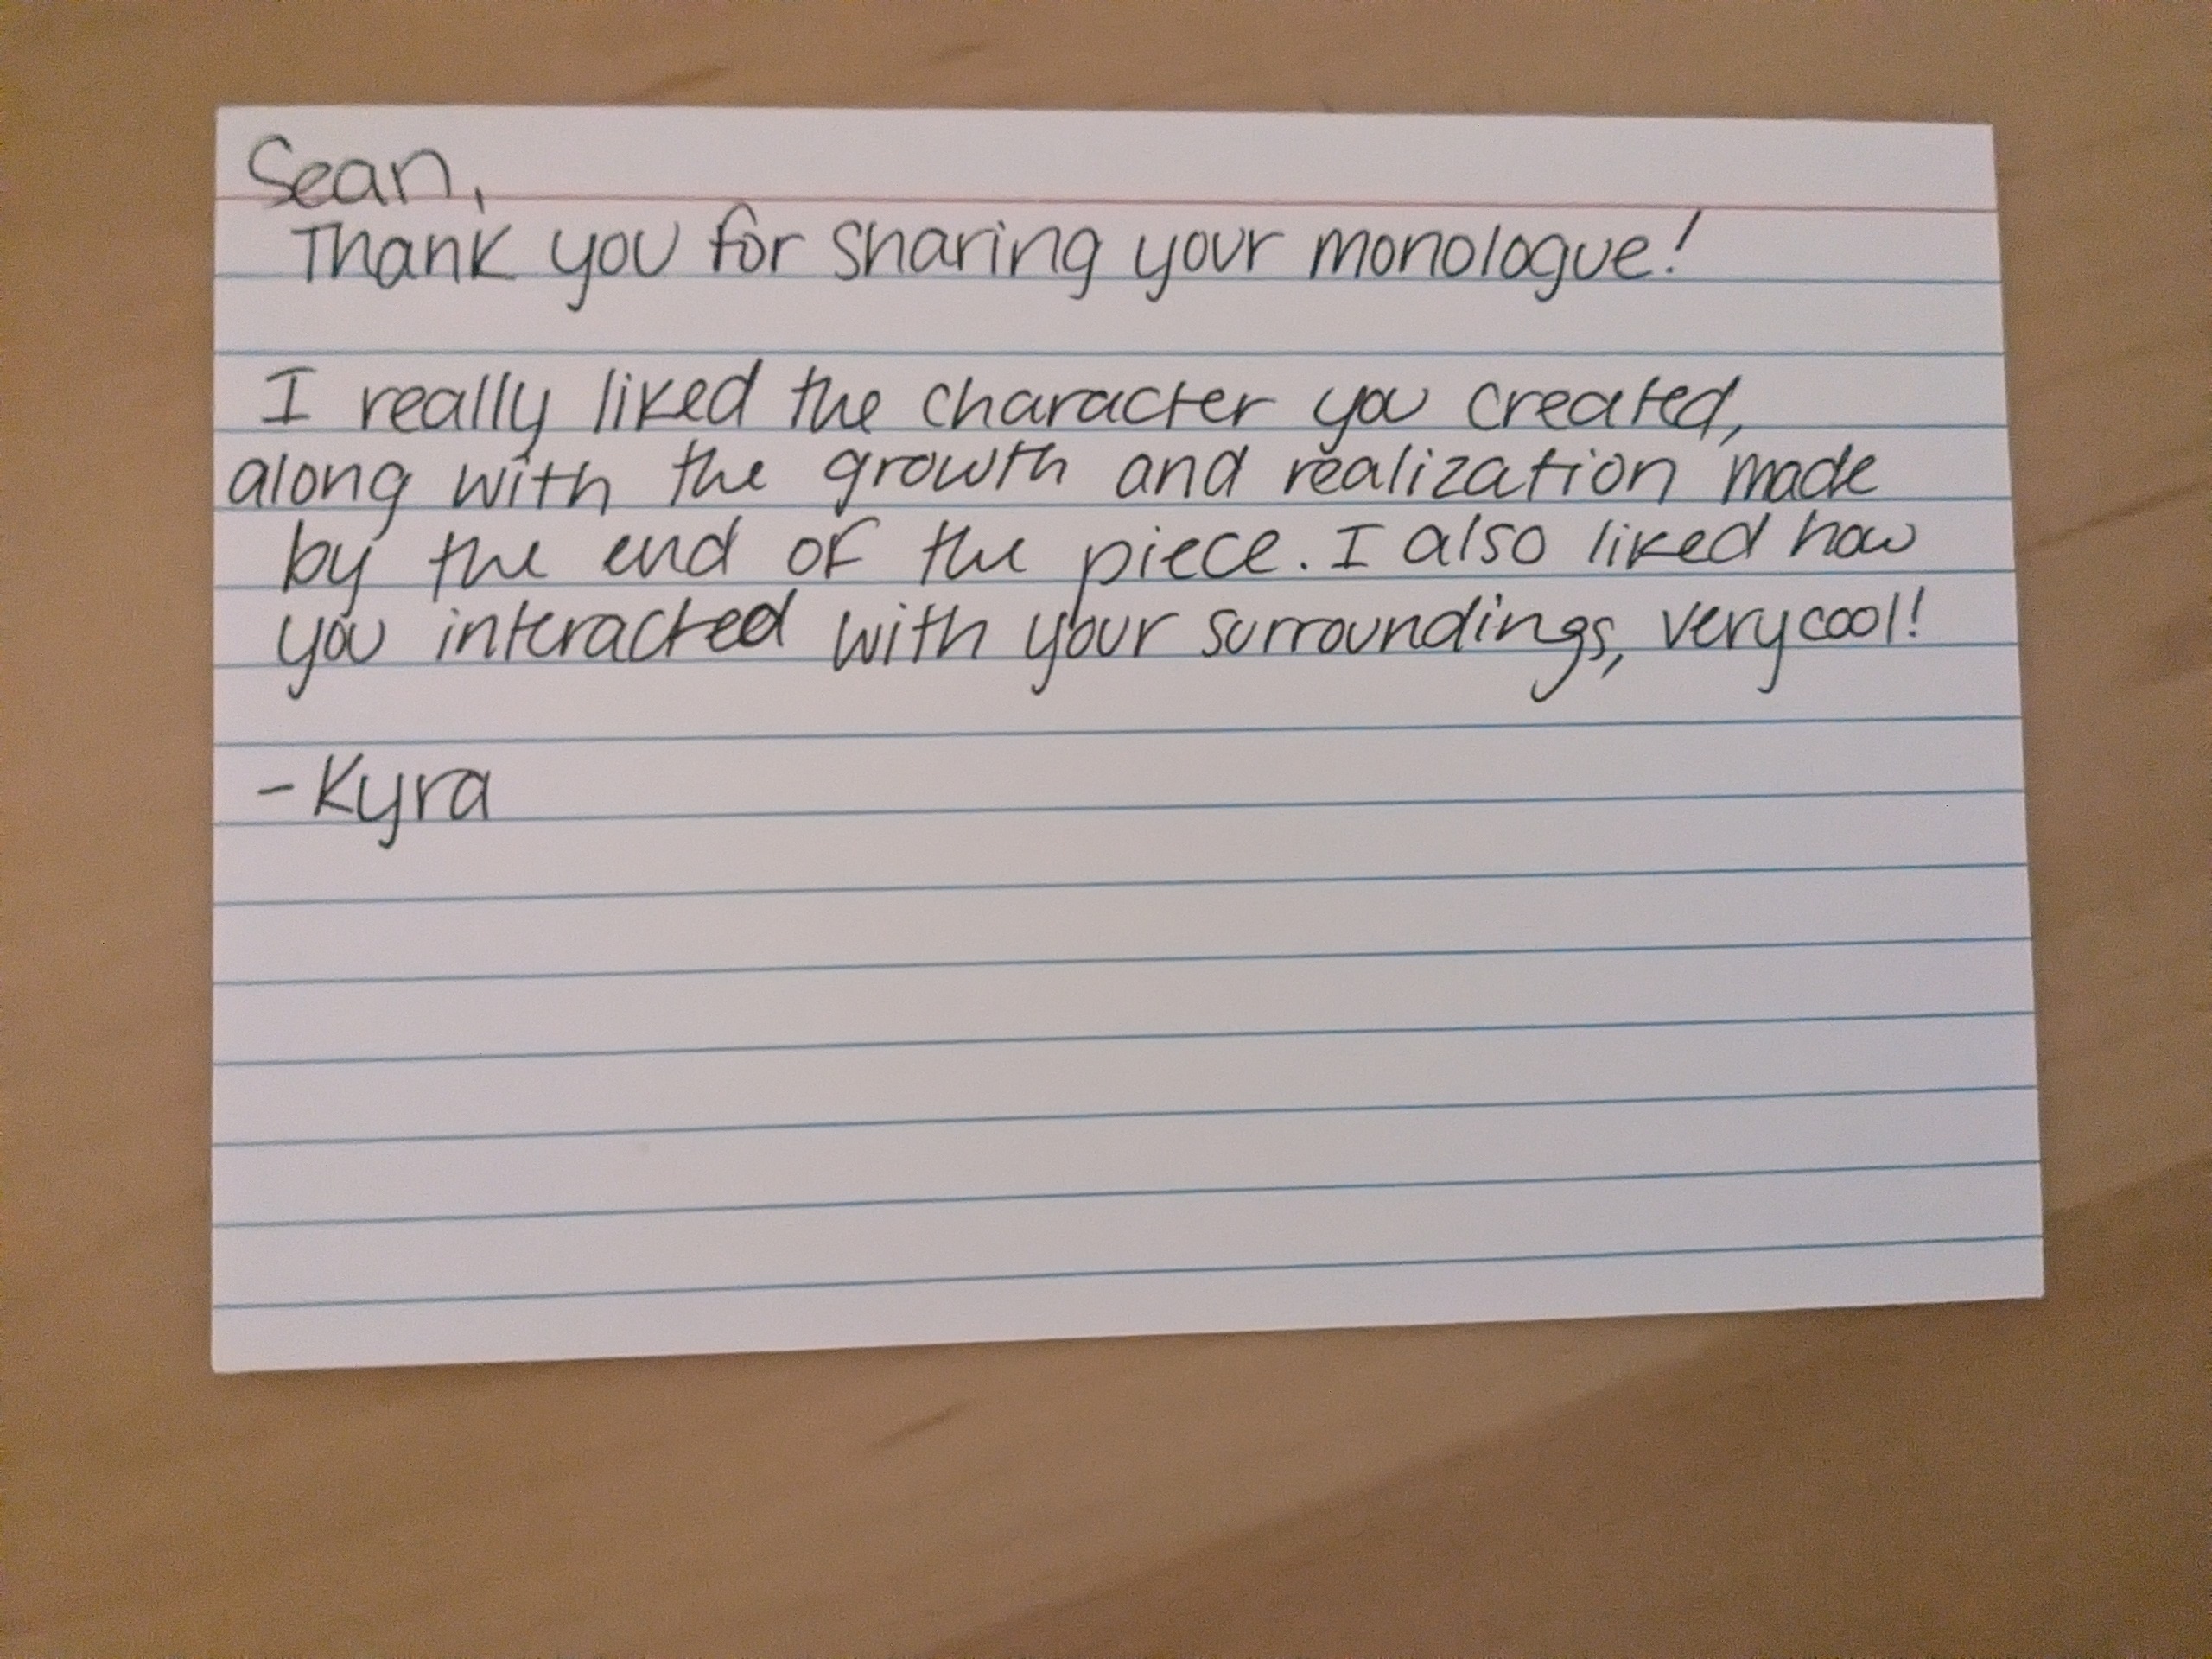 Sean,
Thank you for sharing your monologue!
I really liked the character you created,
along with the growth and realization made
by the end of the piece. I also liked how
you interacted with your surroundings, very cool!
- Kyra